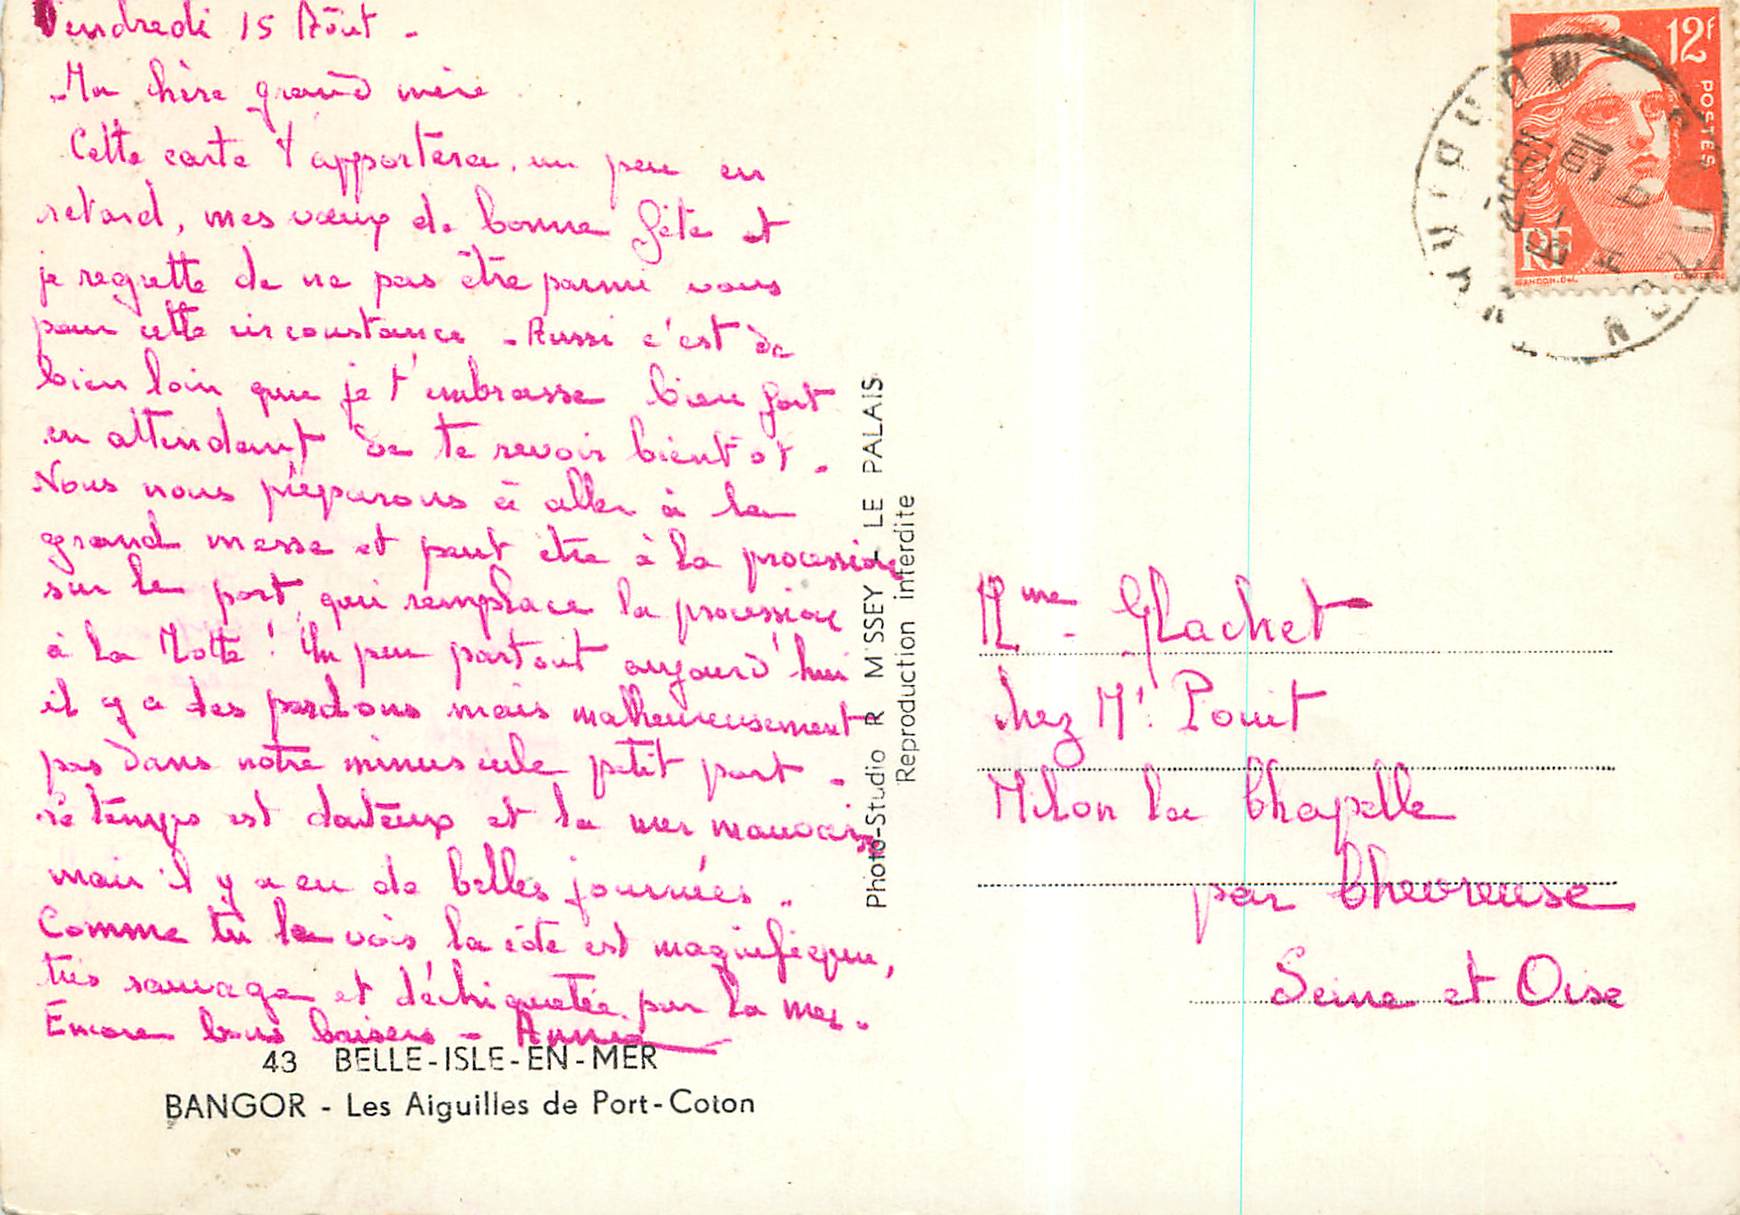 Vendredi 15 Août -
Ma chère grand mère
Cette carte t'apportera, un peu en
retard, mes vœux de bonne fête et
je regrette de ne pas être parmi vous
pour cette circonstance - Aussi c'est de
bien loin que je t'embrasse bien fort
en attendant de te revoir bientôt.
Nous nous préparons à aller à la
grand messe et peut être à la procession
sur le port, qui remplace la procession
à la Motte ! Un peu partout aujourd'hui
il y a des pardons mais malheureusement
pas dans notre minuscule petit port -
le temps est douteux et la mer mauvaise
mais il y a eu de belles journées.
Comme tu le vois la côte est magnifique,
très sauvage et déchiquetée par la mer.
Encore bons baisers - Annie
43 BELLE-ISLE-EN-MER
BANGOR - Les Aiguilles de Port-Coton
Photo-Studio R M SSEY - LE PALAIS
Reproduction interdite
12f
POSTES
RF
Mme - Glachet
chez Mr. Pouit
Milon la Chapelle
par Chevreuse
Seine et Oise